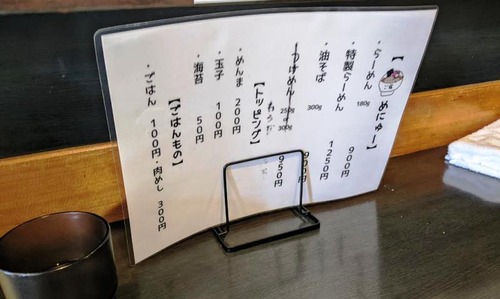 【めにゅー】
・らーめん 180g 900円
・特製らーめん 1250円
・油そば 300g 900円
・つけめん 250g 300g 950円
【トッピング】
・めんま 200円
・玉子 100円
・海苔 50円
【ごはんもの】
・ごはん 100円・肉めし 300円